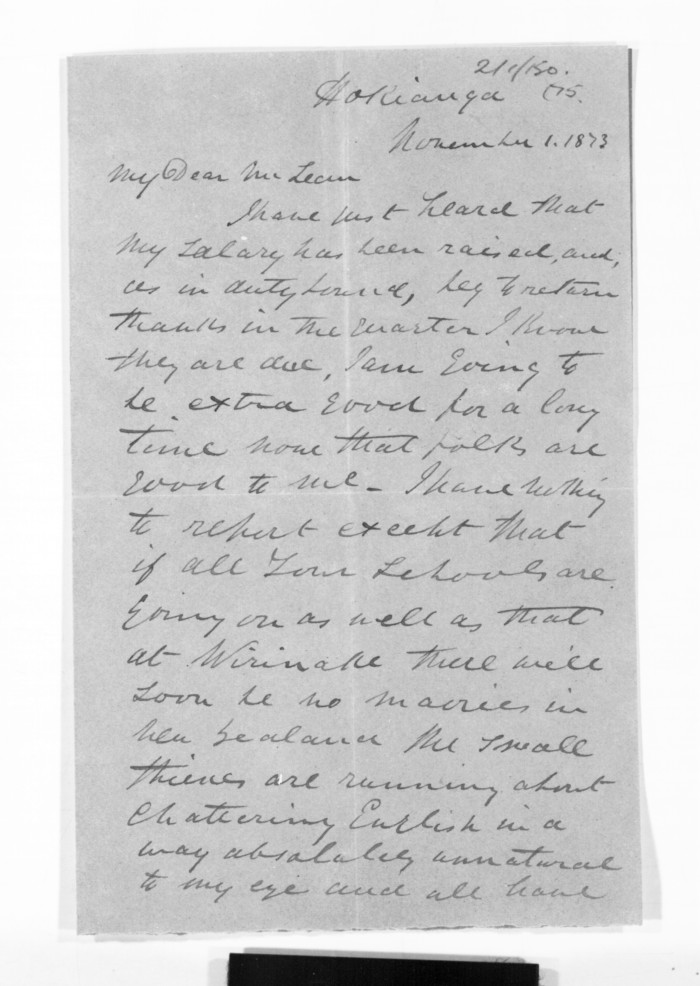 Hokianga
November 1. 1873
My Dear McLean
I have just heard that
my salary has been raised, and,
as in duty bound, beg to return
thanks in the quarter I know
they are due, I am going to
be extra good for a long
time now that folks are
good to me - I have nothing
to report except that
if all your Schools are
going on as well as that
at Wirinake there will
soon be no maories in
New Zealand the small
thieves are running about
chattering English in a
way absolutely unnatural
to my eye and all have